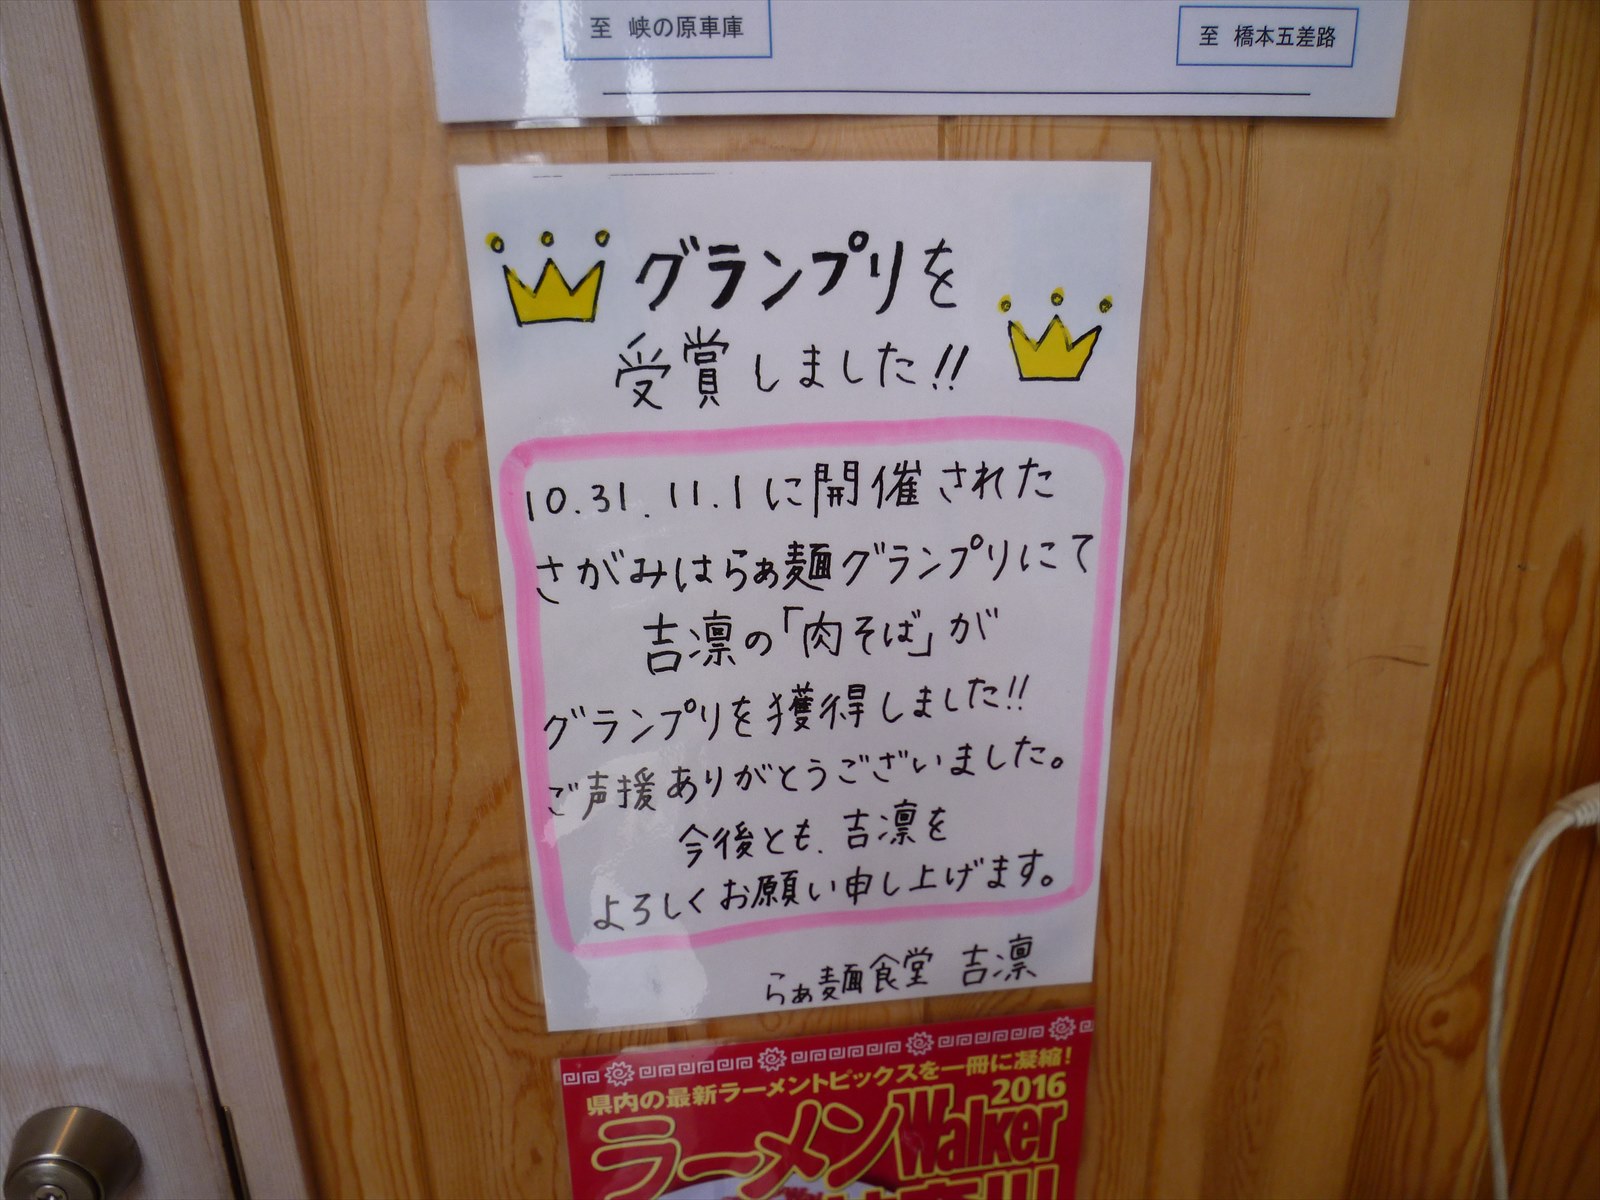 至 峡の原車庫
至 橋本五差路
グランプリを
受賞しました!!
10.31.11.1に開催された
さがみはらぁ麺グランプリにて
吉凛の「肉そば」が
グランプリを獲得しました!!
ご声援ありがとうございました。
今後とも、吉凛を
よろしくお願い申し上げます。
らぁ麺食堂 吉凛
県内の最新ラーメントピックスを一冊に凝縮!
2016
ラーメンWalker